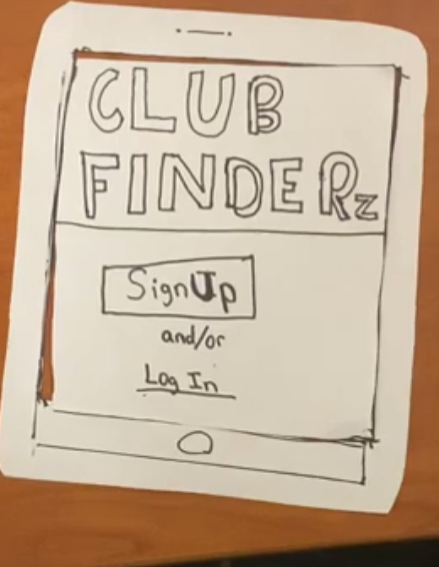 CLUB
FINDERz
SignUp
and/or
Log In